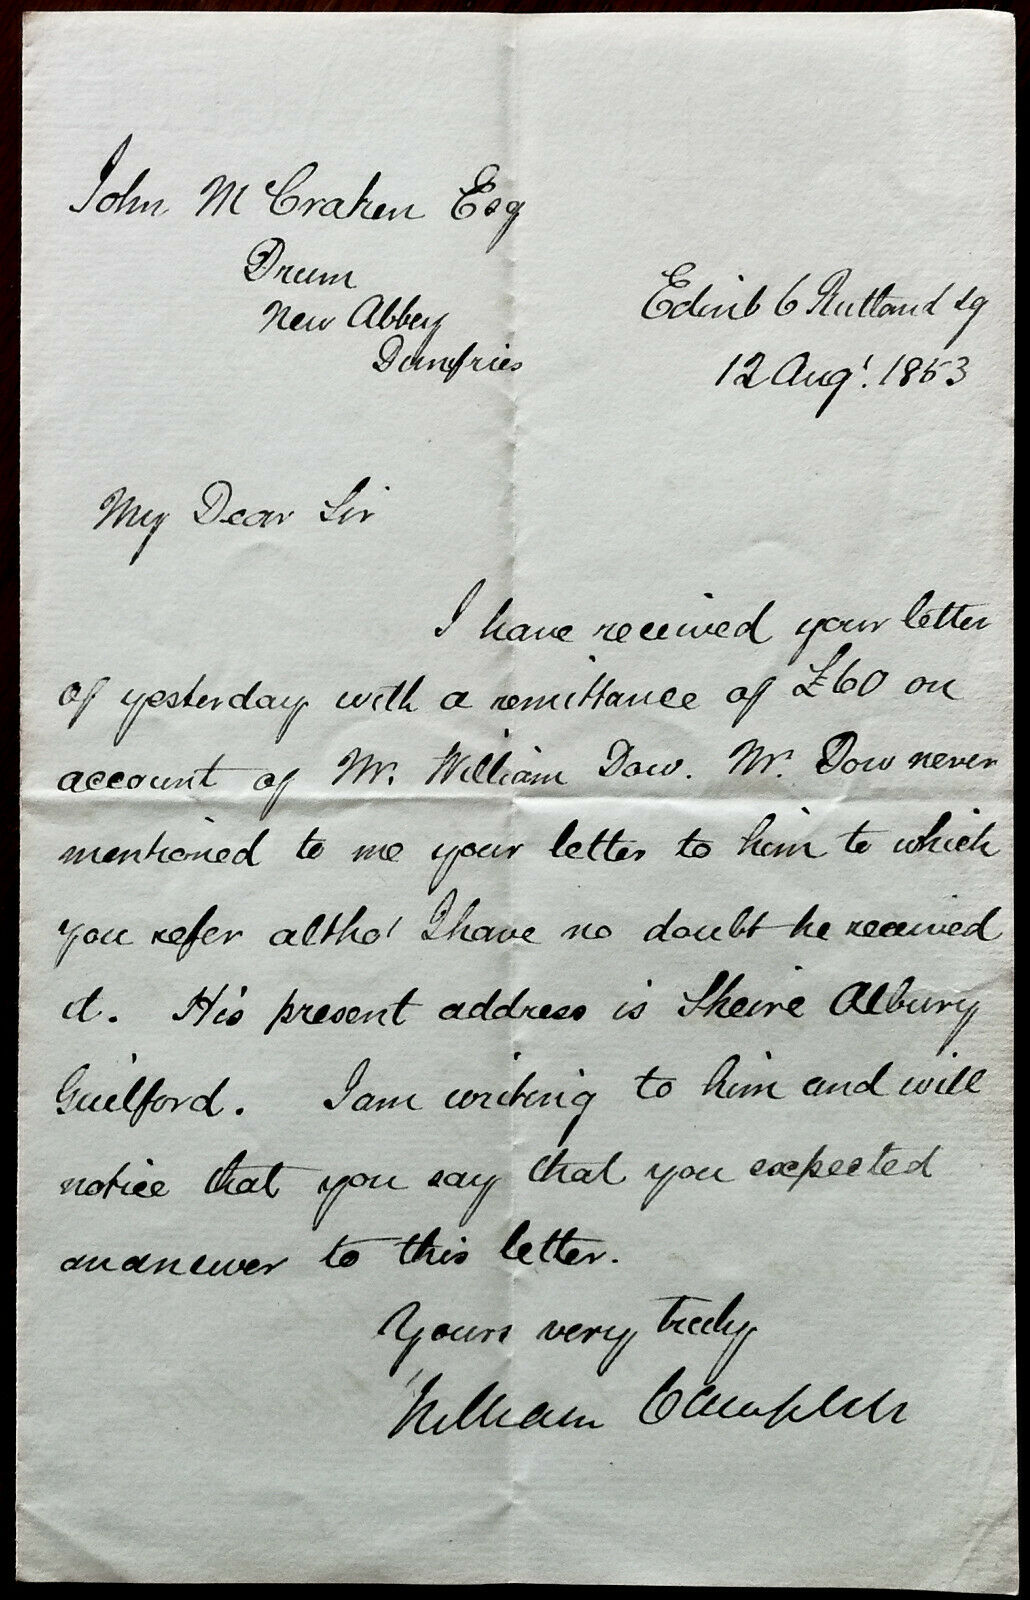 John McCraken Esq
Drum
New Abbey
Dumfries
Edinb 6 Rutland Sq
12 Augt. 1853
My Dear Sir
I have received your letter
of yesterday with a remittance of £60 on
account of Mr. William Dow. Mr. Dow never
mentioned to me your letter to him to which
you refer altho' I have no doubt he received
it. His present address is Sheire Albury
Guilford. I am writing to him and will
notice that you say that you expected
an answer to this letter.
Yours very truly
William Campbell